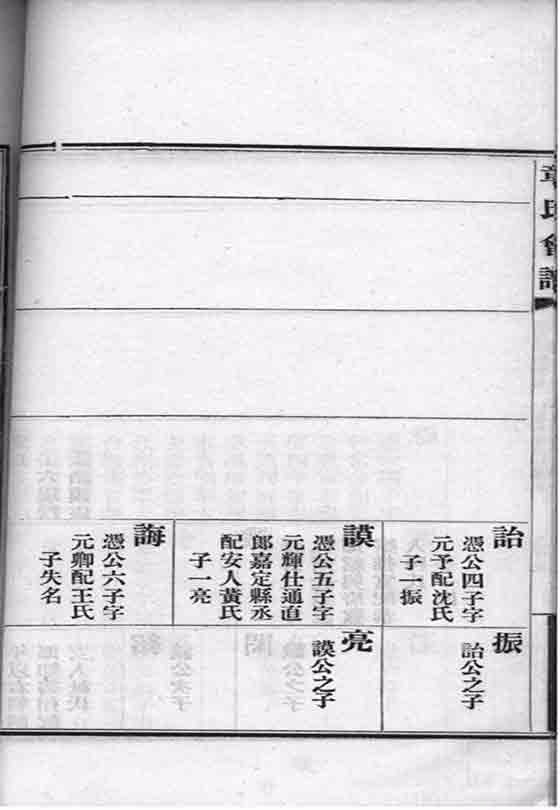 章氏會譜
詒
憑公四子字
元予配沈氏
子一振
謨
憑公五子字
元輝仕通直
郎嘉定縣丞
配安人黃氏
子一亮
誨
憑公六子字
元卿配王氏
子失名
振
詒公之子
亮
謨公之子